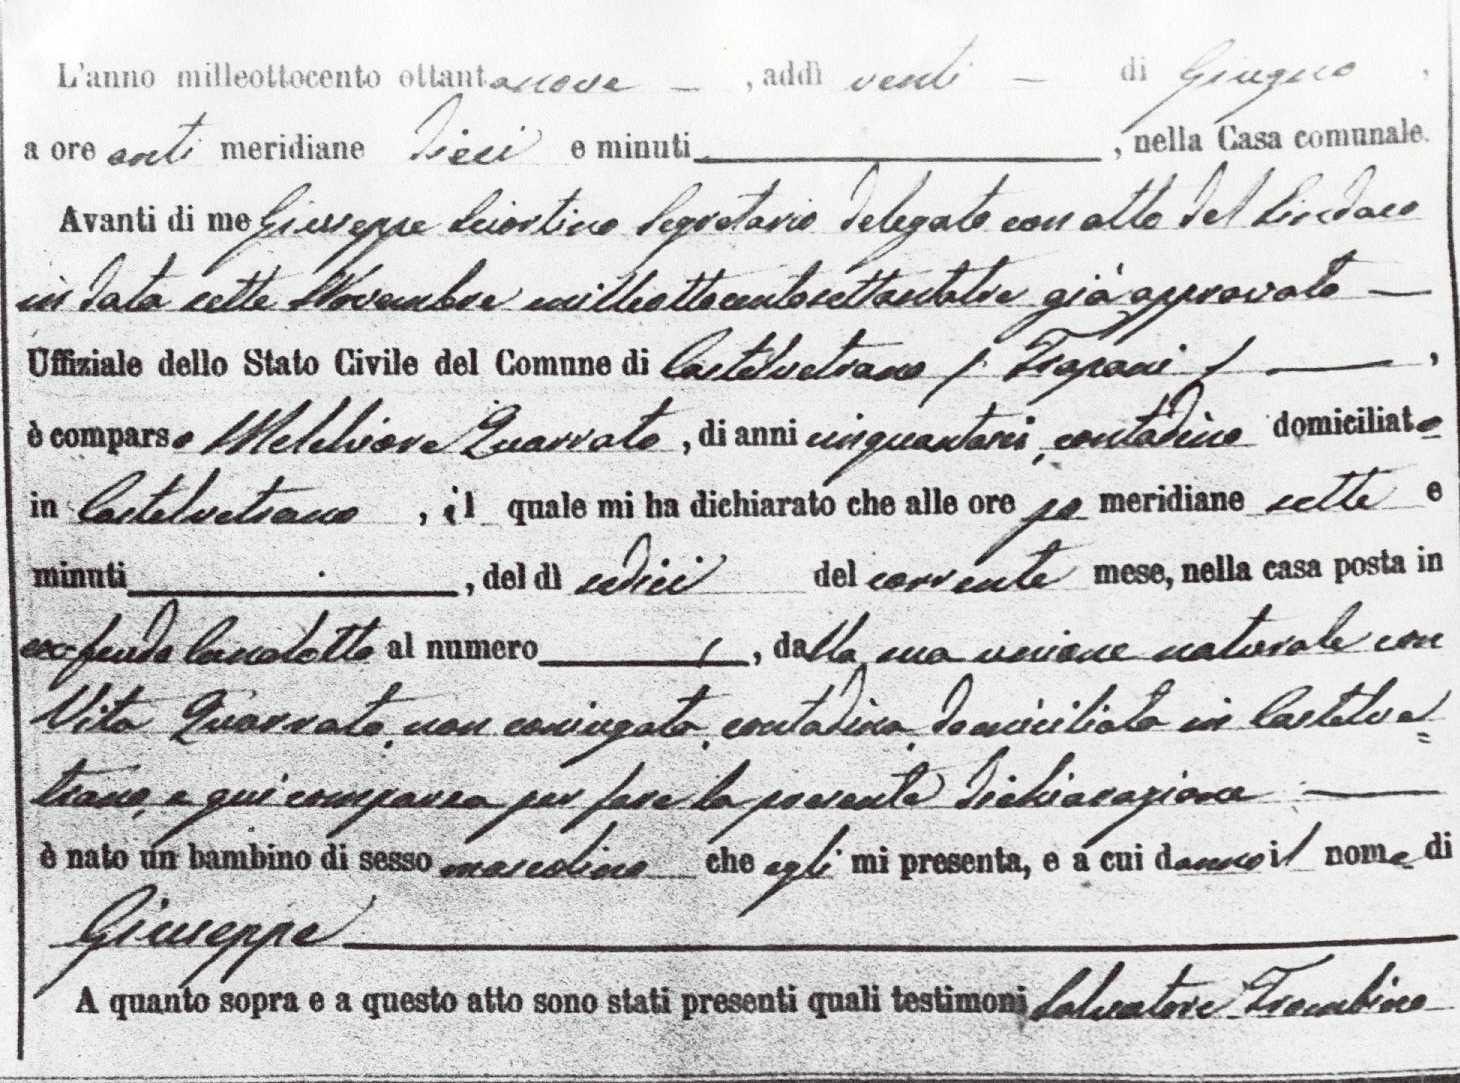 L'anno milleottocento ottantanove — , addì venti — di Giugno ,
a ore anti meridiane dieci e minuti , nella Casa comunale.
Avanti di me Giuseppe Sciortino Segretario delegato con atto del Sindaco
in data sette Novembre milleottocentosettantatre già approvato —
Uffiziale dello Stato Civile del Comune di Castelvetrano / Trapani / — ,
è comparso Melchiore Quarrato , di anni cinquantasei, contadino domiciliato
in Castelvetrano , il quale mi ha dichiarato che alle ore po meridiane sette e
minuti , del dì sedici del corrente mese, nella casa posta in
ex-feudo al numero , dalla sua unione naturale con
Vita Quarrato, non coniugata, contadina, domiciliata in Castelve=
trano, e qui comparsa per fare la presente dichiarazione —
è nato un bambino di sesso mascolino che egli mi presenta, e a cui danno il nome di
Giuseppe
A quanto sopra e a questo atto sono stati presenti quali testimoni Salvatore Trombino